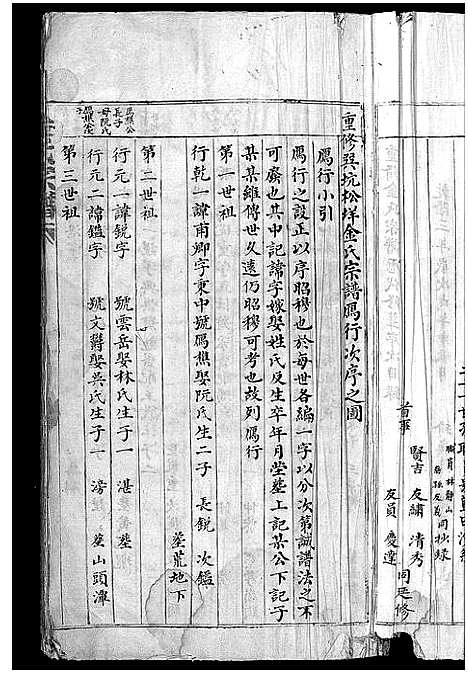 首事
賢吉 友繡 清秀
友員 慶達
同廷修
同抄錄
重修巽坑松垟金氏宗譜鴈行次序之圖
鴈行小引
鴈行之設正以序昭穆也於每世各編一字以分次第誠譜法之不
可廢也其中記諱字嫁娶姓氏及生卒年月塋墓上記某公下記子
某某維傳世久遠仍昭穆可考也故列鴈行
第一世祖
行乾一諱甫卿字東中號鴈樵娶阮氏生二子 長銳 次鑑
墓荒地下
第二世祖
行元一諱銳字 號雲岳娶林氏生子一 湛 墓
行元二諱鑑字 號文爵娶吳氏生子一 滂 墓山頭潭
第三世祖
長子
母阮氏